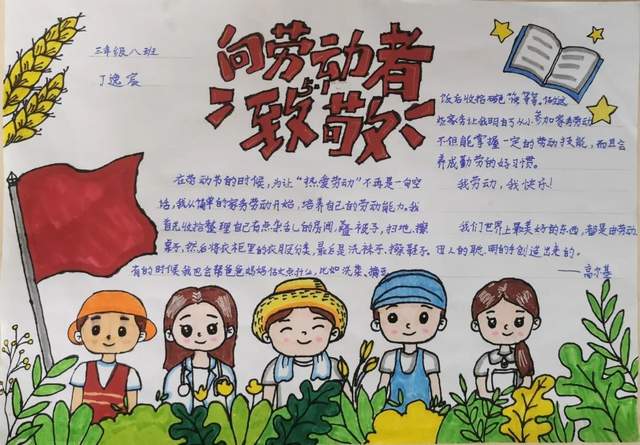 三年级八班
丁逸宸
向劳动者
致敬
五·一
在劳动节的时候,为让“热爱劳动”不再是一句空
话,我从简单的家务劳动开始,培养自己的劳动能力。我
首先收拾整理自己有点杂乱的房间,叠被子,扫地,擦
桌子,然后将衣柜里的衣服分类,最后是洗袜子、擦鞋子。
有的时候我也会帮爸爸妈妈做点什么,比如洗菜、摘豆
饭后收拾碗筷等等。做这
些家务让我明白了从小参加家务劳动
不但能掌握一定的劳动技能,而且会
养成勤劳的好习惯。
我劳动,我快乐!
我们世界上最美好的东西,都是由劳动、
由人的聪明的手创造出来的。
——高尔基